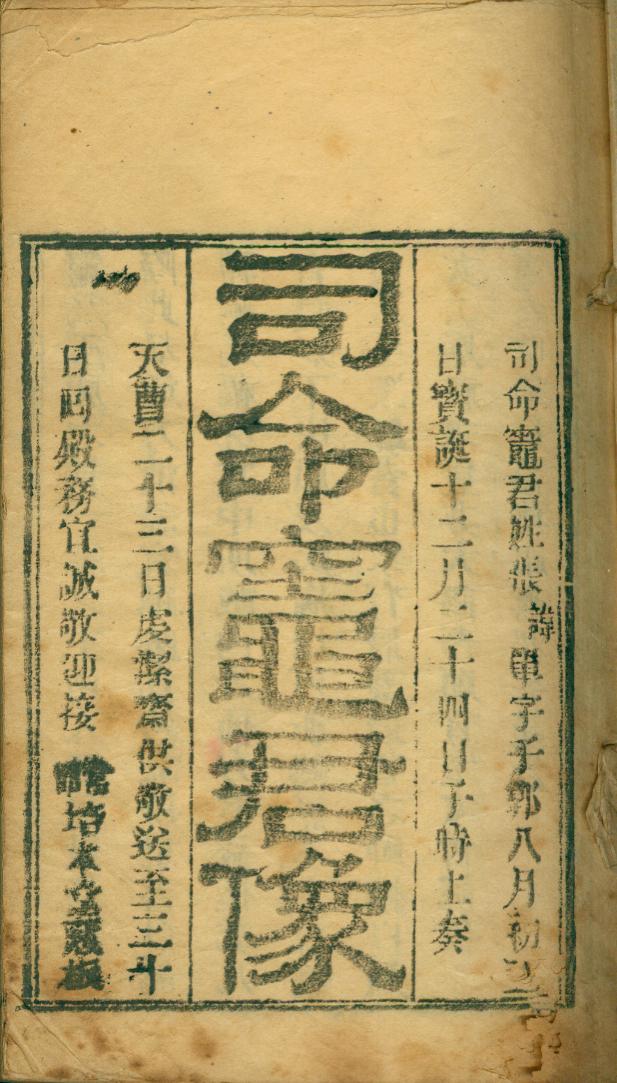 司命竈君姓張諱單字子郭八月初三
日寶誕十二月二十四日子時上奏
司命竈君像
天曹二十三日虔潔齋供敬送至三十
日回殿務宜誠敬迎接
培本堂藏板